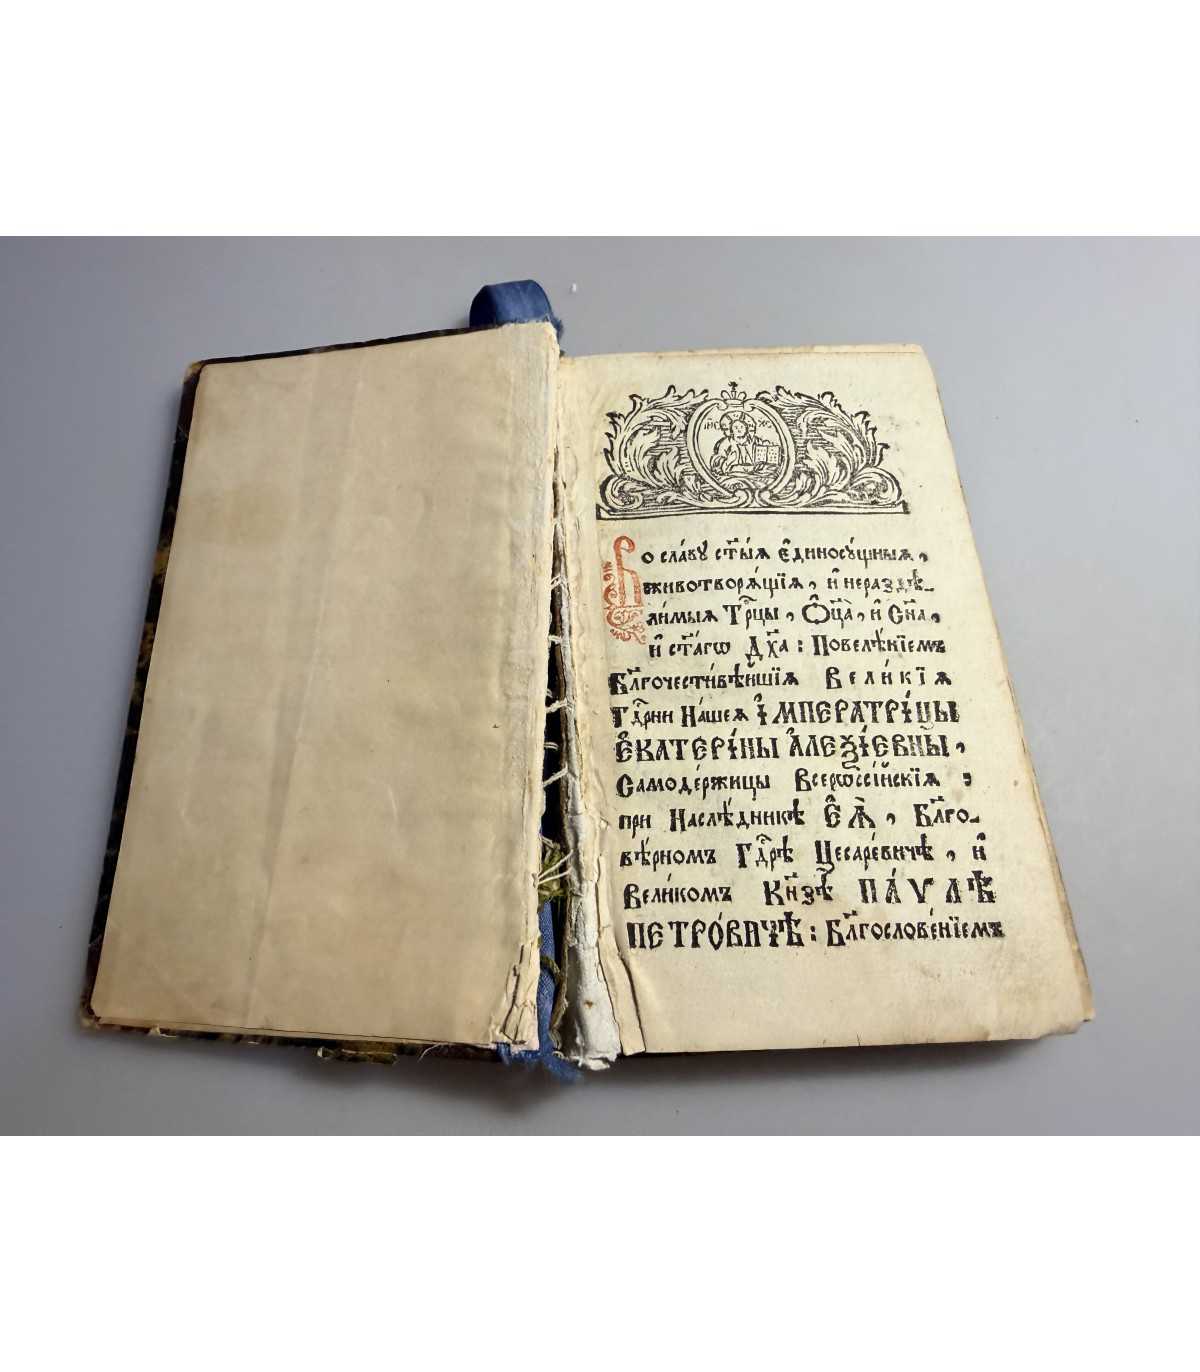 І҆И҃С ХС
Во сла́ву ст҃ы́ѧ є҆диносꙋ́щныѧ,
животворѧ́щїѧ, и҆ нераздѣ-
ли́мыѧ Трⷪ҇цы, Ѻ҆ц҃а̀, и҆ Сн҃а,
и҆ ст҃а́гѡ Дх҃а: Повелѣ́нїемъ
Бл҃гочести́вѣйшїѧ Вели́кїѧ
Гдⷭ҇рни На́шеѧ І҆МПЕРАТРІ́ЦЫ
Є҆КАТЕРІ́НЫ А҆ЛЕѮІ́ЕВНЫ,
Самоде́ржицы Всерѡссі́йскїѧ:
при Наслѣ́дникѣ Є҆Ѧ̀, Бл҃го-
вѣ́рномъ Гдⷭ҇рѣ Цесаре́вичѣ, и҆
Вели́комъ Кн҃зѣ ПА́ѴЛѢ
ПЕТРО́ВИЧѢ: Бл҃гослове́нїемъ